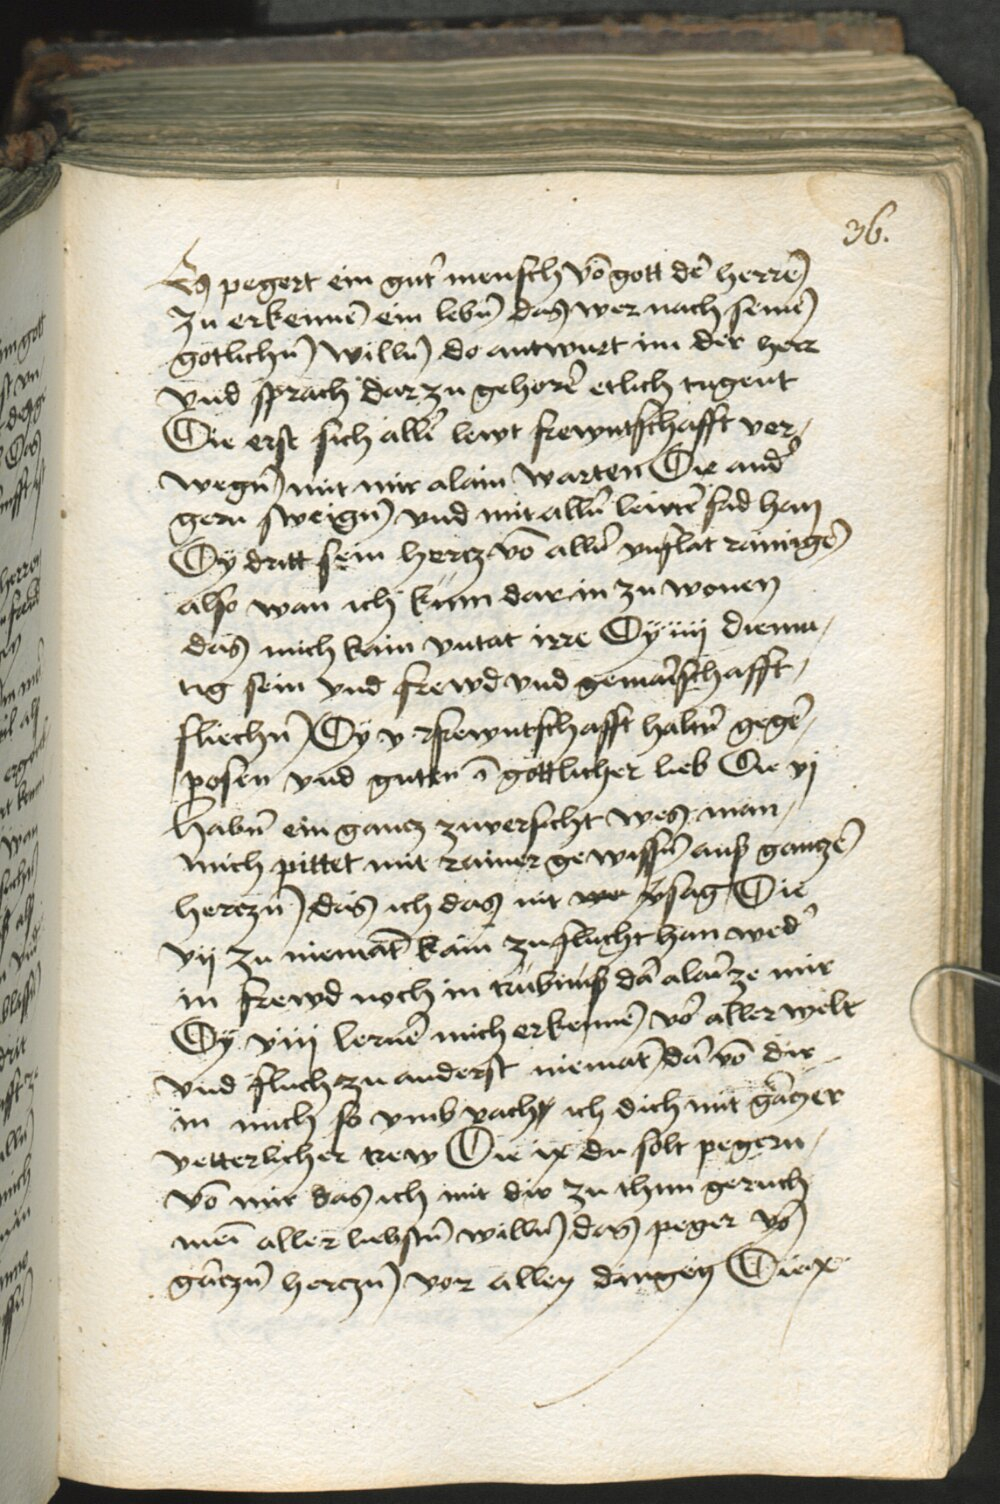 36.
Es pegert ein gut᷒ mensch vō gott dē herrē
zu erkennē ein lebn̄ das wer nach seinē
gotlichn̄ willn̄ do antwurt im der herr
vnd sprach dar zu gehorē etlich tugent
Die erst sich all᷒ lewt frewntschafft ver/
wegn̄ mit mir alain warten Die and᷒
gern sweign̄ vnd mit alln̄ lewtē frid han
Dy dritt sein hercz vō alln̄ vnflat rainigē
also wan ich kum dar in zu wonen
das mich kain vntat irre Dy iiij diemu/
tig sein vnd frewd vnd gemainschafft/
fliechn̄ Dy v frewntschafft haltn̄ gegē/
posen vnd guten ī gottlicher lieb Die vj
habn̄ ein gancz zuversicht wes man/
mich pittet mit rainer gewissn̄ auß ganczē
herczn̄ das ich das nit v᷒sag Die
vij zu niemāt kain zuflucht han wed᷒
in frewd noch in trubnuß dā alain ze mir
Dy viij lernē mich erkennē vor aller welt
vnd fluch zu anderst niemāt dā vō dir
in mich so vmb vach ich dich mit gāczer
vetterlicher trew Die ix du solt pegern/
vō mir das ich mit dir zu thun geruch
mein aller liebstn̄ willn̄ das peger vō
gāczn̄ herczn̄ vor allen dingen Die x